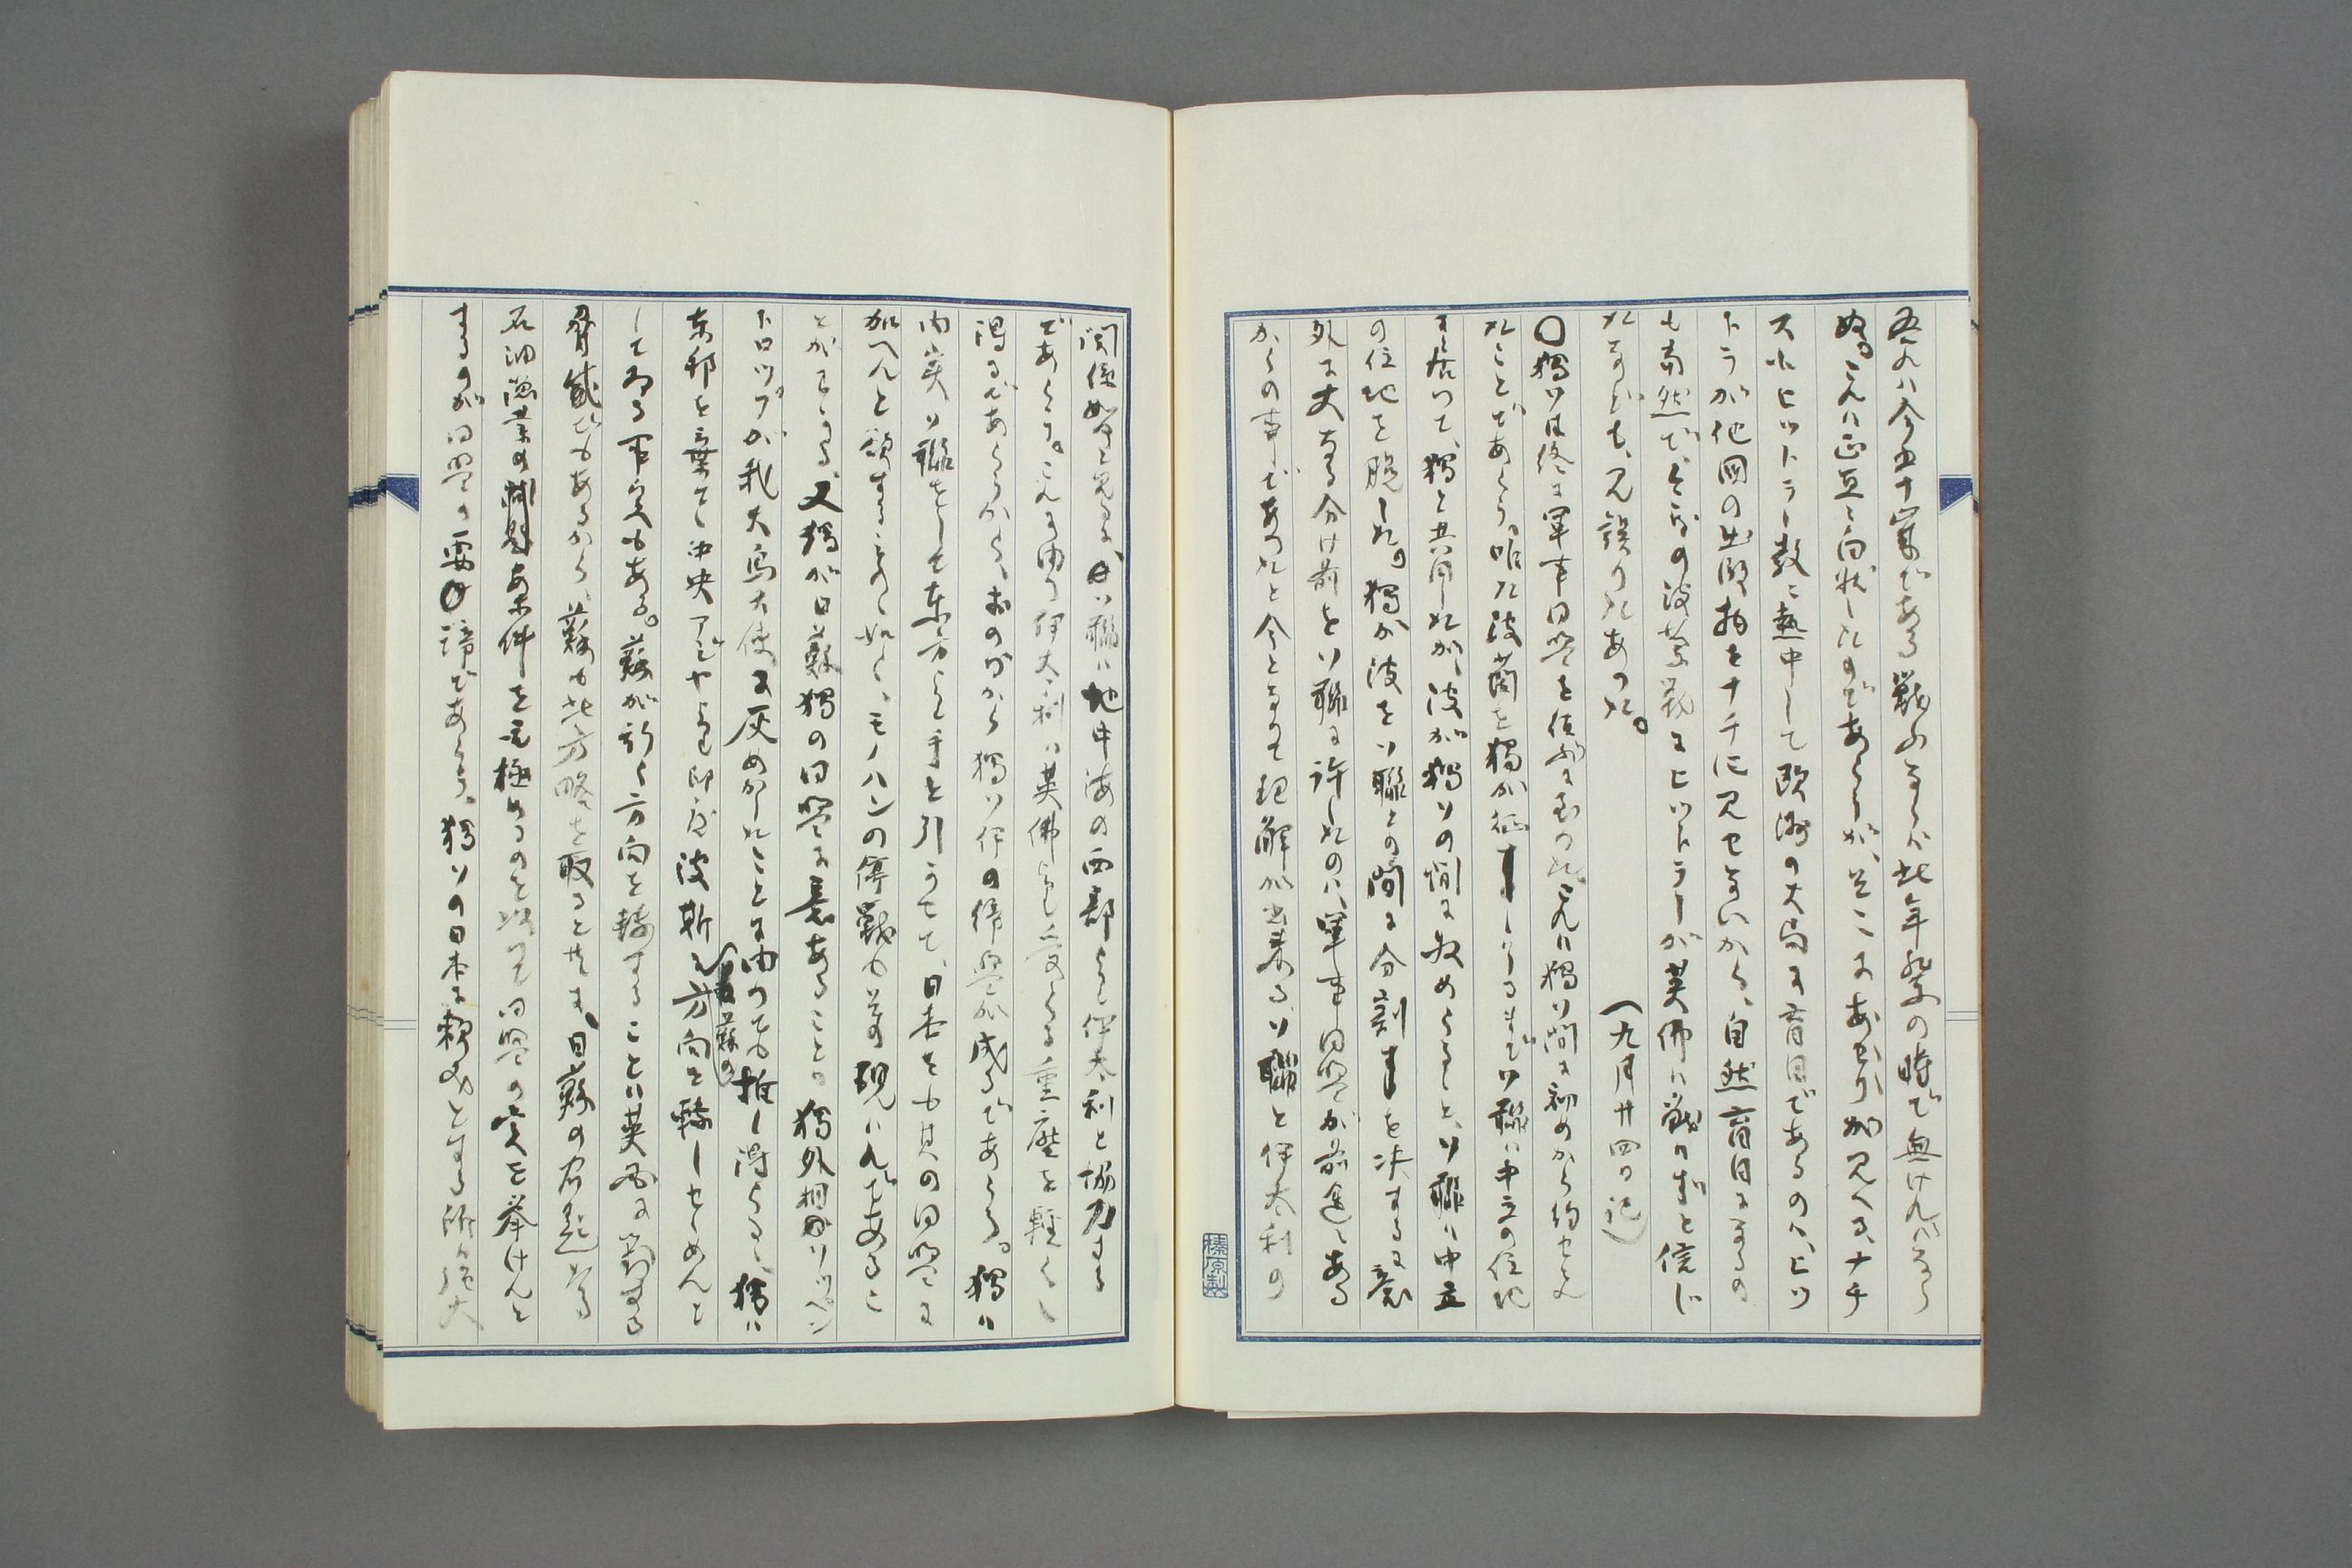 吾れハ今五十歳である戦ふならバ此年齢の時で無けれバなら
ぬ。これハ正直に白状したのであらうが、そこにあせりが見へる、ナチ
スハヒットラー教に熱中して欧洲の大局に盲目であるのハ、ヒツ
トラが他国の出版物をナチに見せないから、自然盲目になるの
も当然で、今度の波蘭戦にヒットラーが英佛ハ戦ハずと信じ
たなども、見誤りであつた。
（九月廿四日記）
〇獨ソは終に軍事同盟を結ぶに至つた、これハ獨ソ間に初めから約せられ
たことであらう。唯た波蘭を獨が征しするまでソ聯ハ中立の位地
に居つて、獨と共同したが、波が獨ソの間に収めらると、ソ聯ハ中立
の位地を脱した。獨が波をソ聯との間に分割を決するに意
外に大なる分け前をソ聯に許したのハ、軍事同盟が前途にある
からの事であつたと今となりて理解が出来る、ソ聯と伊太利の
関係如何と見るに、ソ聯ハ地中海の西部にも伊太利と協力する
であらう。これに由り伊太利ハ英佛より受くる重壓を軽くし
得るであらうから、おのづから獨ソ伊の同盟が成るであらう。獨ハ
内実ソ聯をして東方から手を引かせて、日本をも其の同盟に
加へんと欲することの如く、モノハンの停戦も其の現ハれであるこ
とが了える、又獨が日蘇獨の同盟に意あることハ獨外相リッペン
トロツプが我大島大使に仄めかしたことに由つても推し得らる、獨ハ
東邦を棄てゝ中央アジヤより印度波斯に方向を轉しせしめんと
日蘇の
してゐる形勢もある。蘇が斯く方向を轉することハ英國に対する
脅威でもあるから、蘇も此方略を取ると共に、日蘇の国境
石油漁業の問題案件を見極めるのを以つて同盟の実を挙げんと
するのが同盟の要諦であらう。獨ソの日本に対する